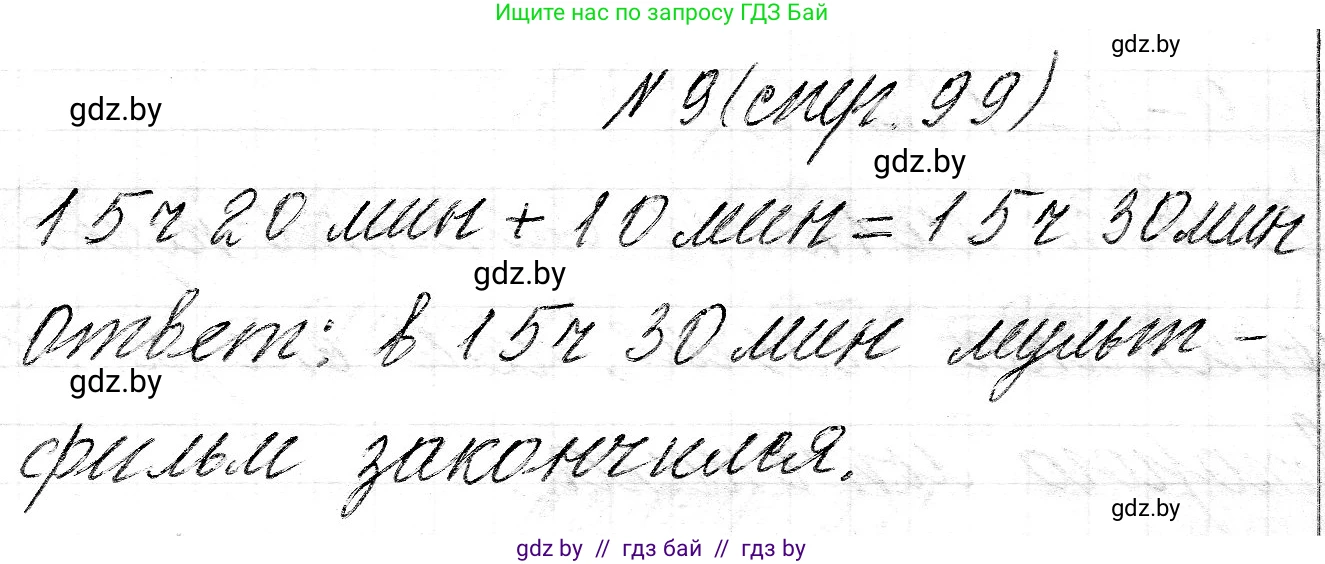 Ищите нас по запросу ГДЗ Бай
gdz.by
N 9 (стр. 99)
gdz.by
gdz.by
15 ч 20 мин + 10 мин = 15 ч 30 мин
gdz.by
ответ: в 15 ч 30 мин мульт-
gdz.by
фильм закончился.
gdz.by
gdz by // гдз бай // гдз by